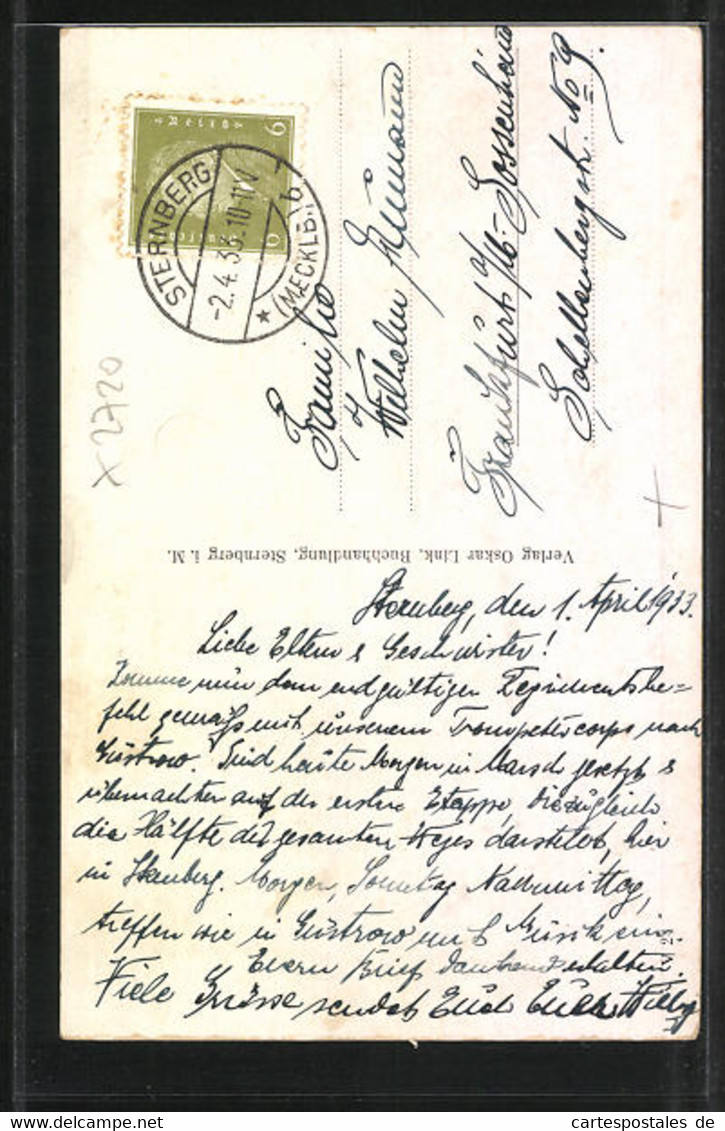 6
6
STERNBERG
-2.4.33.10-11V
* (MECKLB.) b
Familie
Wilhelm
Frankfurt a/M-Sossenheim
Schellenbergstr. No 9.
X 2720
Verlag Oskar Link, Buchhandlung, Sternberg i. M.
Sternberg, den 1. April 1933.
Liebe Eltern & Geschwister!
Komme nun dem endgültigen Regimentsbe=
fehl gemäß mit unserem Trompetercorps nach
Güstrow. Sind heute Morgen in Marsch gesetzt &
übernachten auf der ersten Etappe, die zugleich
die Hälfte des gesamten Weges darstellet, hier
in Sternberg. Morgen, Sonntag Nachmittag,
treffen wir in Güstrow mit Musik ein.
Euern Brief dankend erhalten.
Viele Grüsse sendet Euch Euer Willy
cartespostales - de
cartespostales.de